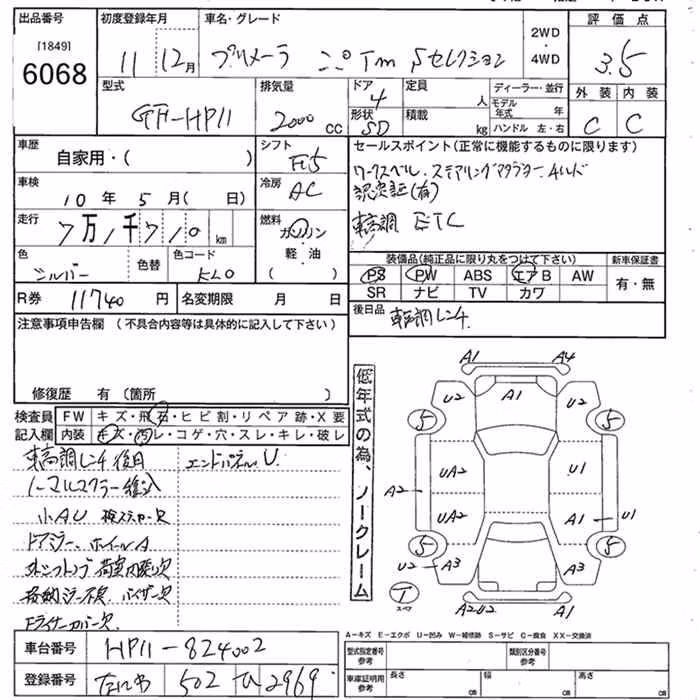 出品番号 初度登録年月 車名・グレード 2WD・4WD 評価点
[1849]
6068 11 12月 プリメーラ Tm Sセレクション 3.5
型式 排気量 ドア 定員 ディーラー・並行 外装 内装
GF-HP11 2000cc 4 人 モデル年式 年 C C
形状 積載 ハンドル 左・右
SD kg
車歴 シフト セールスポイント(正常に機能するものに限ります)
自家用・( ) F5
車検 冷房
10年5月( 日) AC
認定証(有)
走行 燃料
7万1千710km ガソリン 車高調 ETC
軽・油
( )
色 色替 色コード 装備品(純正品に限り丸をつけて下さい) 新車保証書
シルバー KL0 PS PW ABS エアB AW 有・無
SR ナビ TV カワ
R券 11740円 名変期限 月 日
後日品 車高調レンチ
注意事項申告欄(不具合内容等は具体的に記入して下さい)
修復歴 有(箇所 )
低年式の為、ノークレーム
検査員 FW キズ・飛石・ヒビ割・リペア跡・X要
記入欄 内装 キズ・汚レ・コゲ・穴・スレ・キレ・破レ
車高調レンチ後日 エンドパネルU
ノーマルマフラー積込
小AU
ドアミラー、ホイールA
バイザー欠
A1 A4
U2 A1 U2
5 5
UA2 U1
A2
UA2 A1 U1
5 5
U2 A3 A3
T
スペア
A2U2 A1
A-キズ E-エクボ U-凹み W-補修跡 S-サビ C-腐食 XX-交換済
車台番号 HP11-824002
登録番号 502 2969
型式指定番号 参考 類別区分番号 参考
車庫証明用 参考 長さ cm 幅 cm 高さ cm